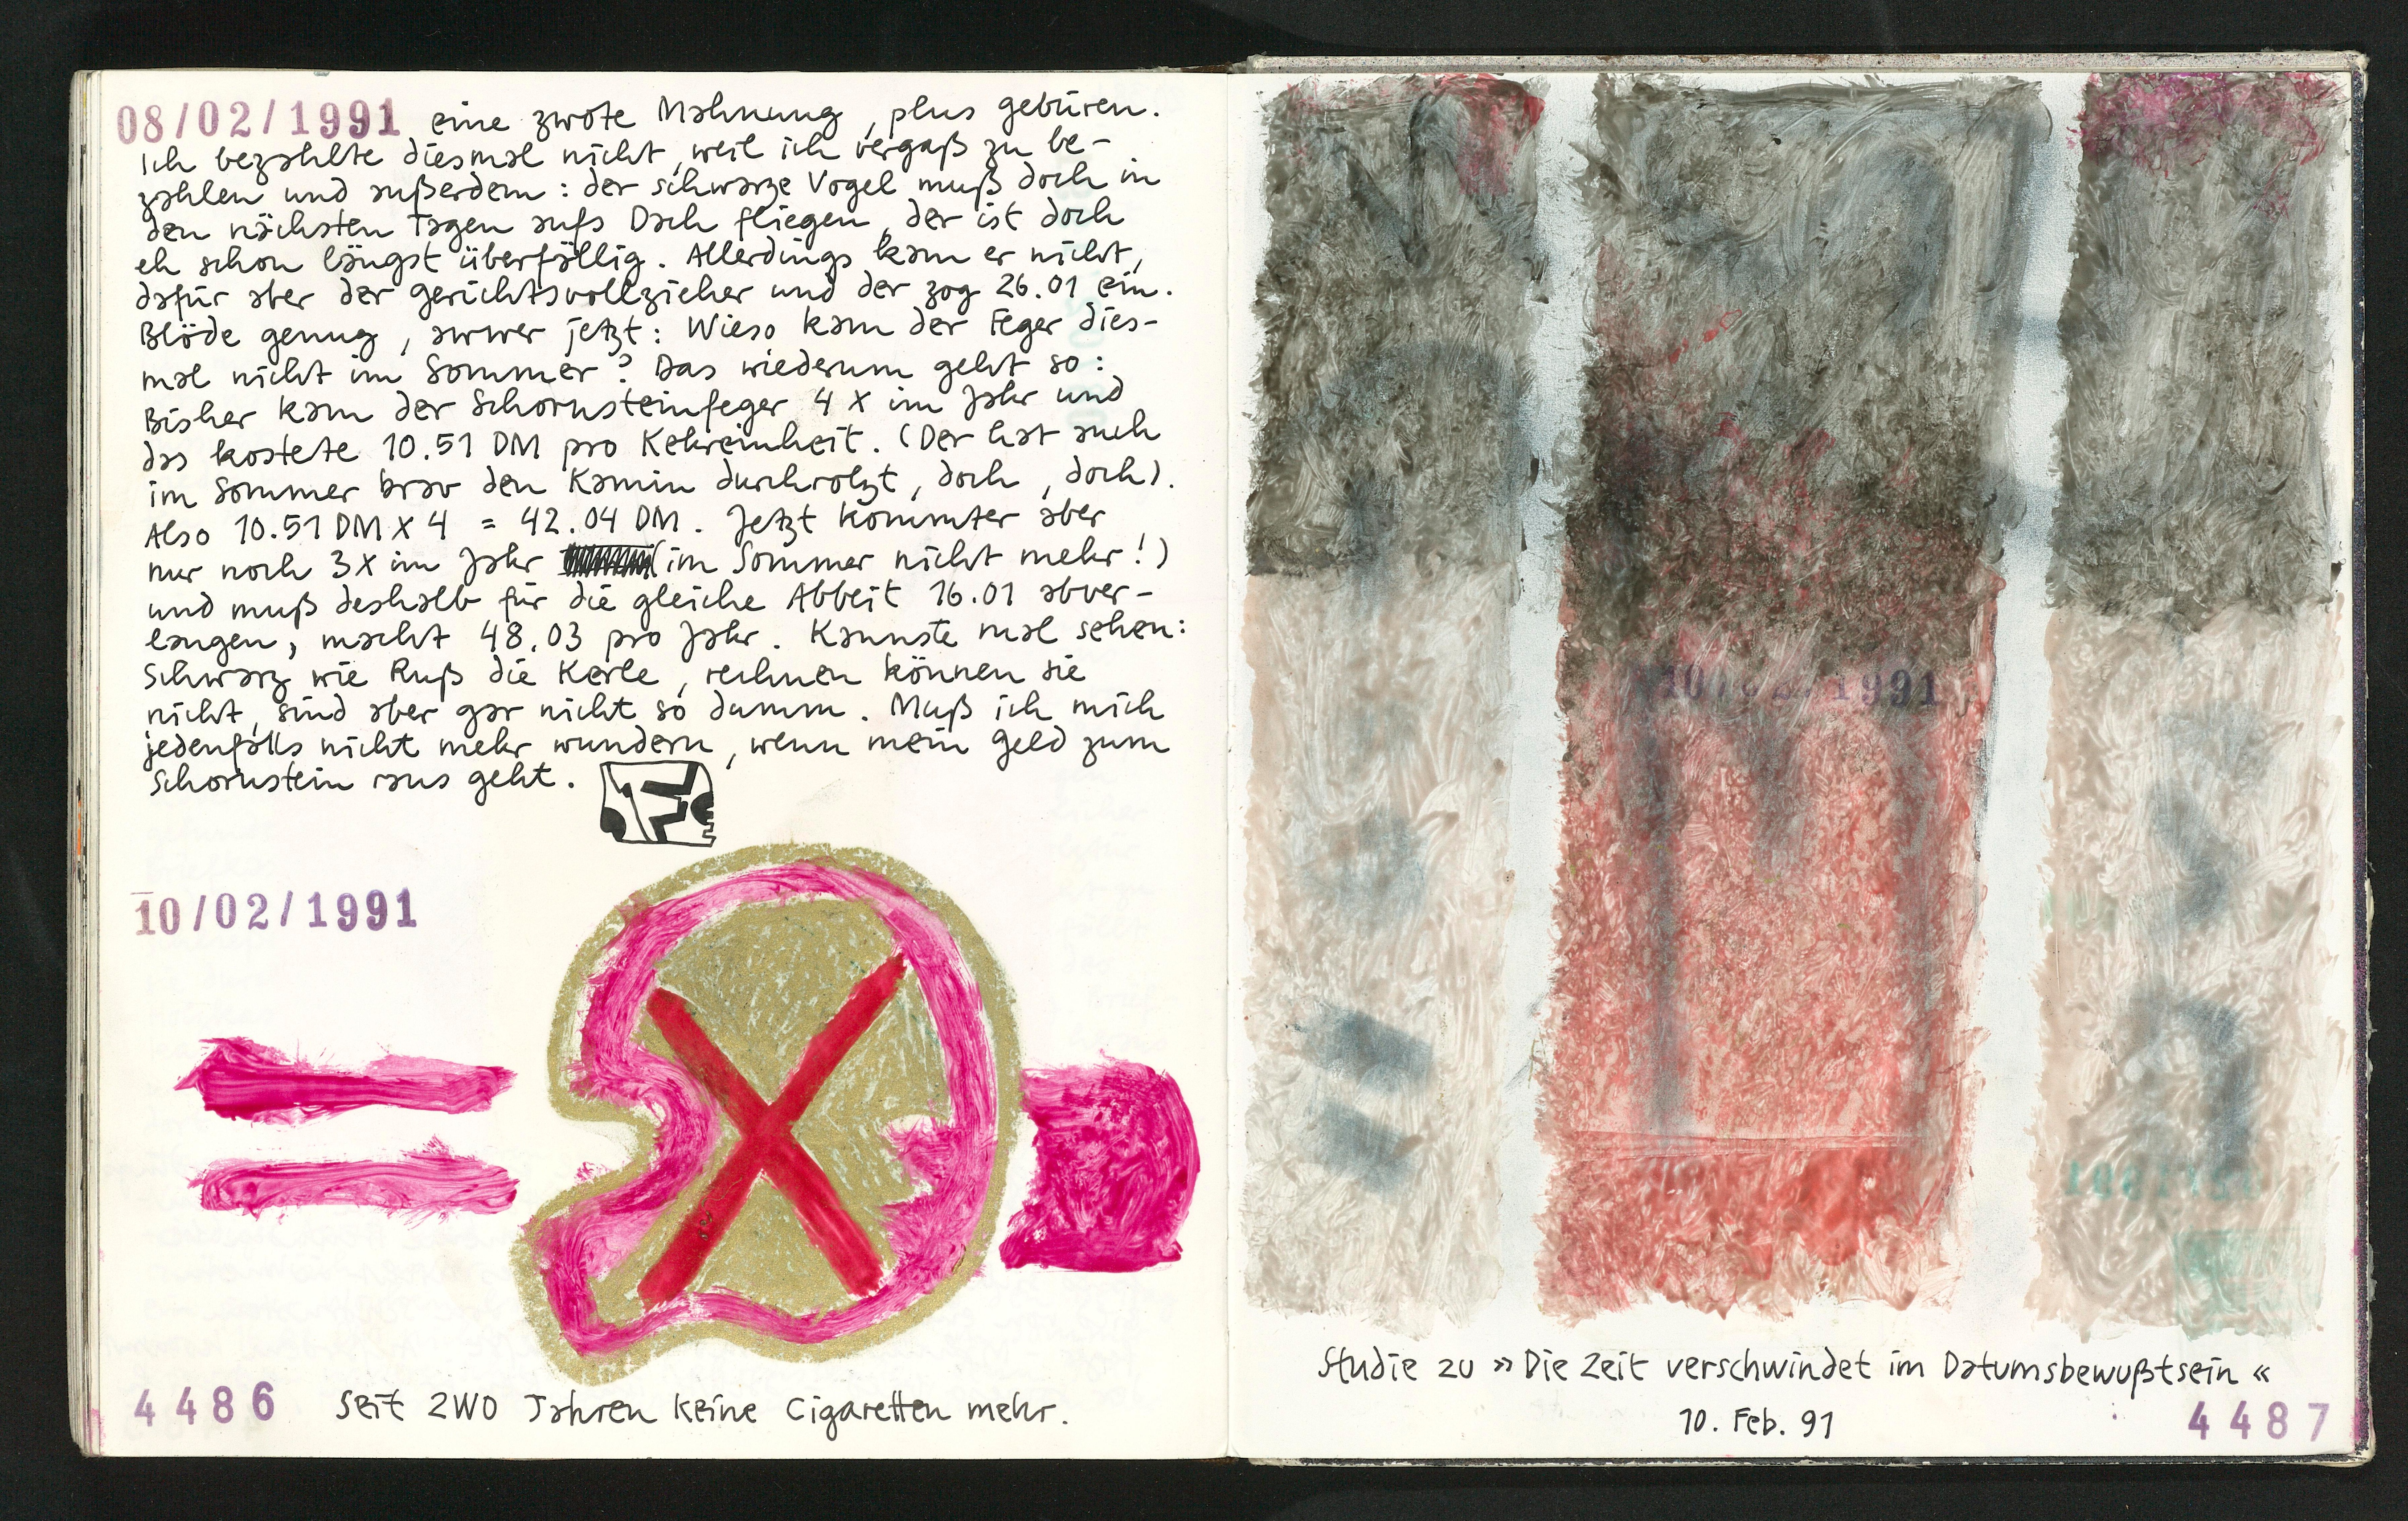 08/02/1991 eine zwote Mahnung, plus gebüren.
Ich bezahlte diesmal nicht, weil ich vergaß zu be-
zahlen und außerdem: der schwarze Vogel muß doch in
den nächsten Tagen aufs Dach fliegen, der ist doch
eh schon längst überfällig. Allerdings kam er nicht,
dafür aber der gerichtsvollzieher und der zog 26.01 ein.
Blöde genug, awwer jetzt: Wieso kam der Feger dies-
mal nicht im Sommer? Das wiederum geht so:
Bisher kam der Schornsteinfeger 4 X im Jahr und
das kostete 10.51 DM pro Kehreinheit. (Der hat auch
im Sommer brav den Kamin durchrotzt, doch, doch).
Also 10.51 DM X 4 = 42.04 DM. Jetzt kommter aber
nur noch 3X im Jahr (im Sommer nicht mehr!)
und muß deshalb für die gleiche Abbeit 16.01 abver-
langen, macht 48.03 pro Jahr. Kannste mal sehen:
Schwarz wie Ruß die Kerle, rechnen können sie
nicht, sind aber gar nicht so dumm. Muß ich mich
jedenfalls nicht mehr wundern, wenn mein geld zum
Schornstein raus geht.
10/02/1991
4486 Seit ZWO Jahren keine Cigaretten mehr.
10/02/1991
Studie zu »Die Zeit verschwindet im Datumsbewußtsein«
10. Feb. 91
4487